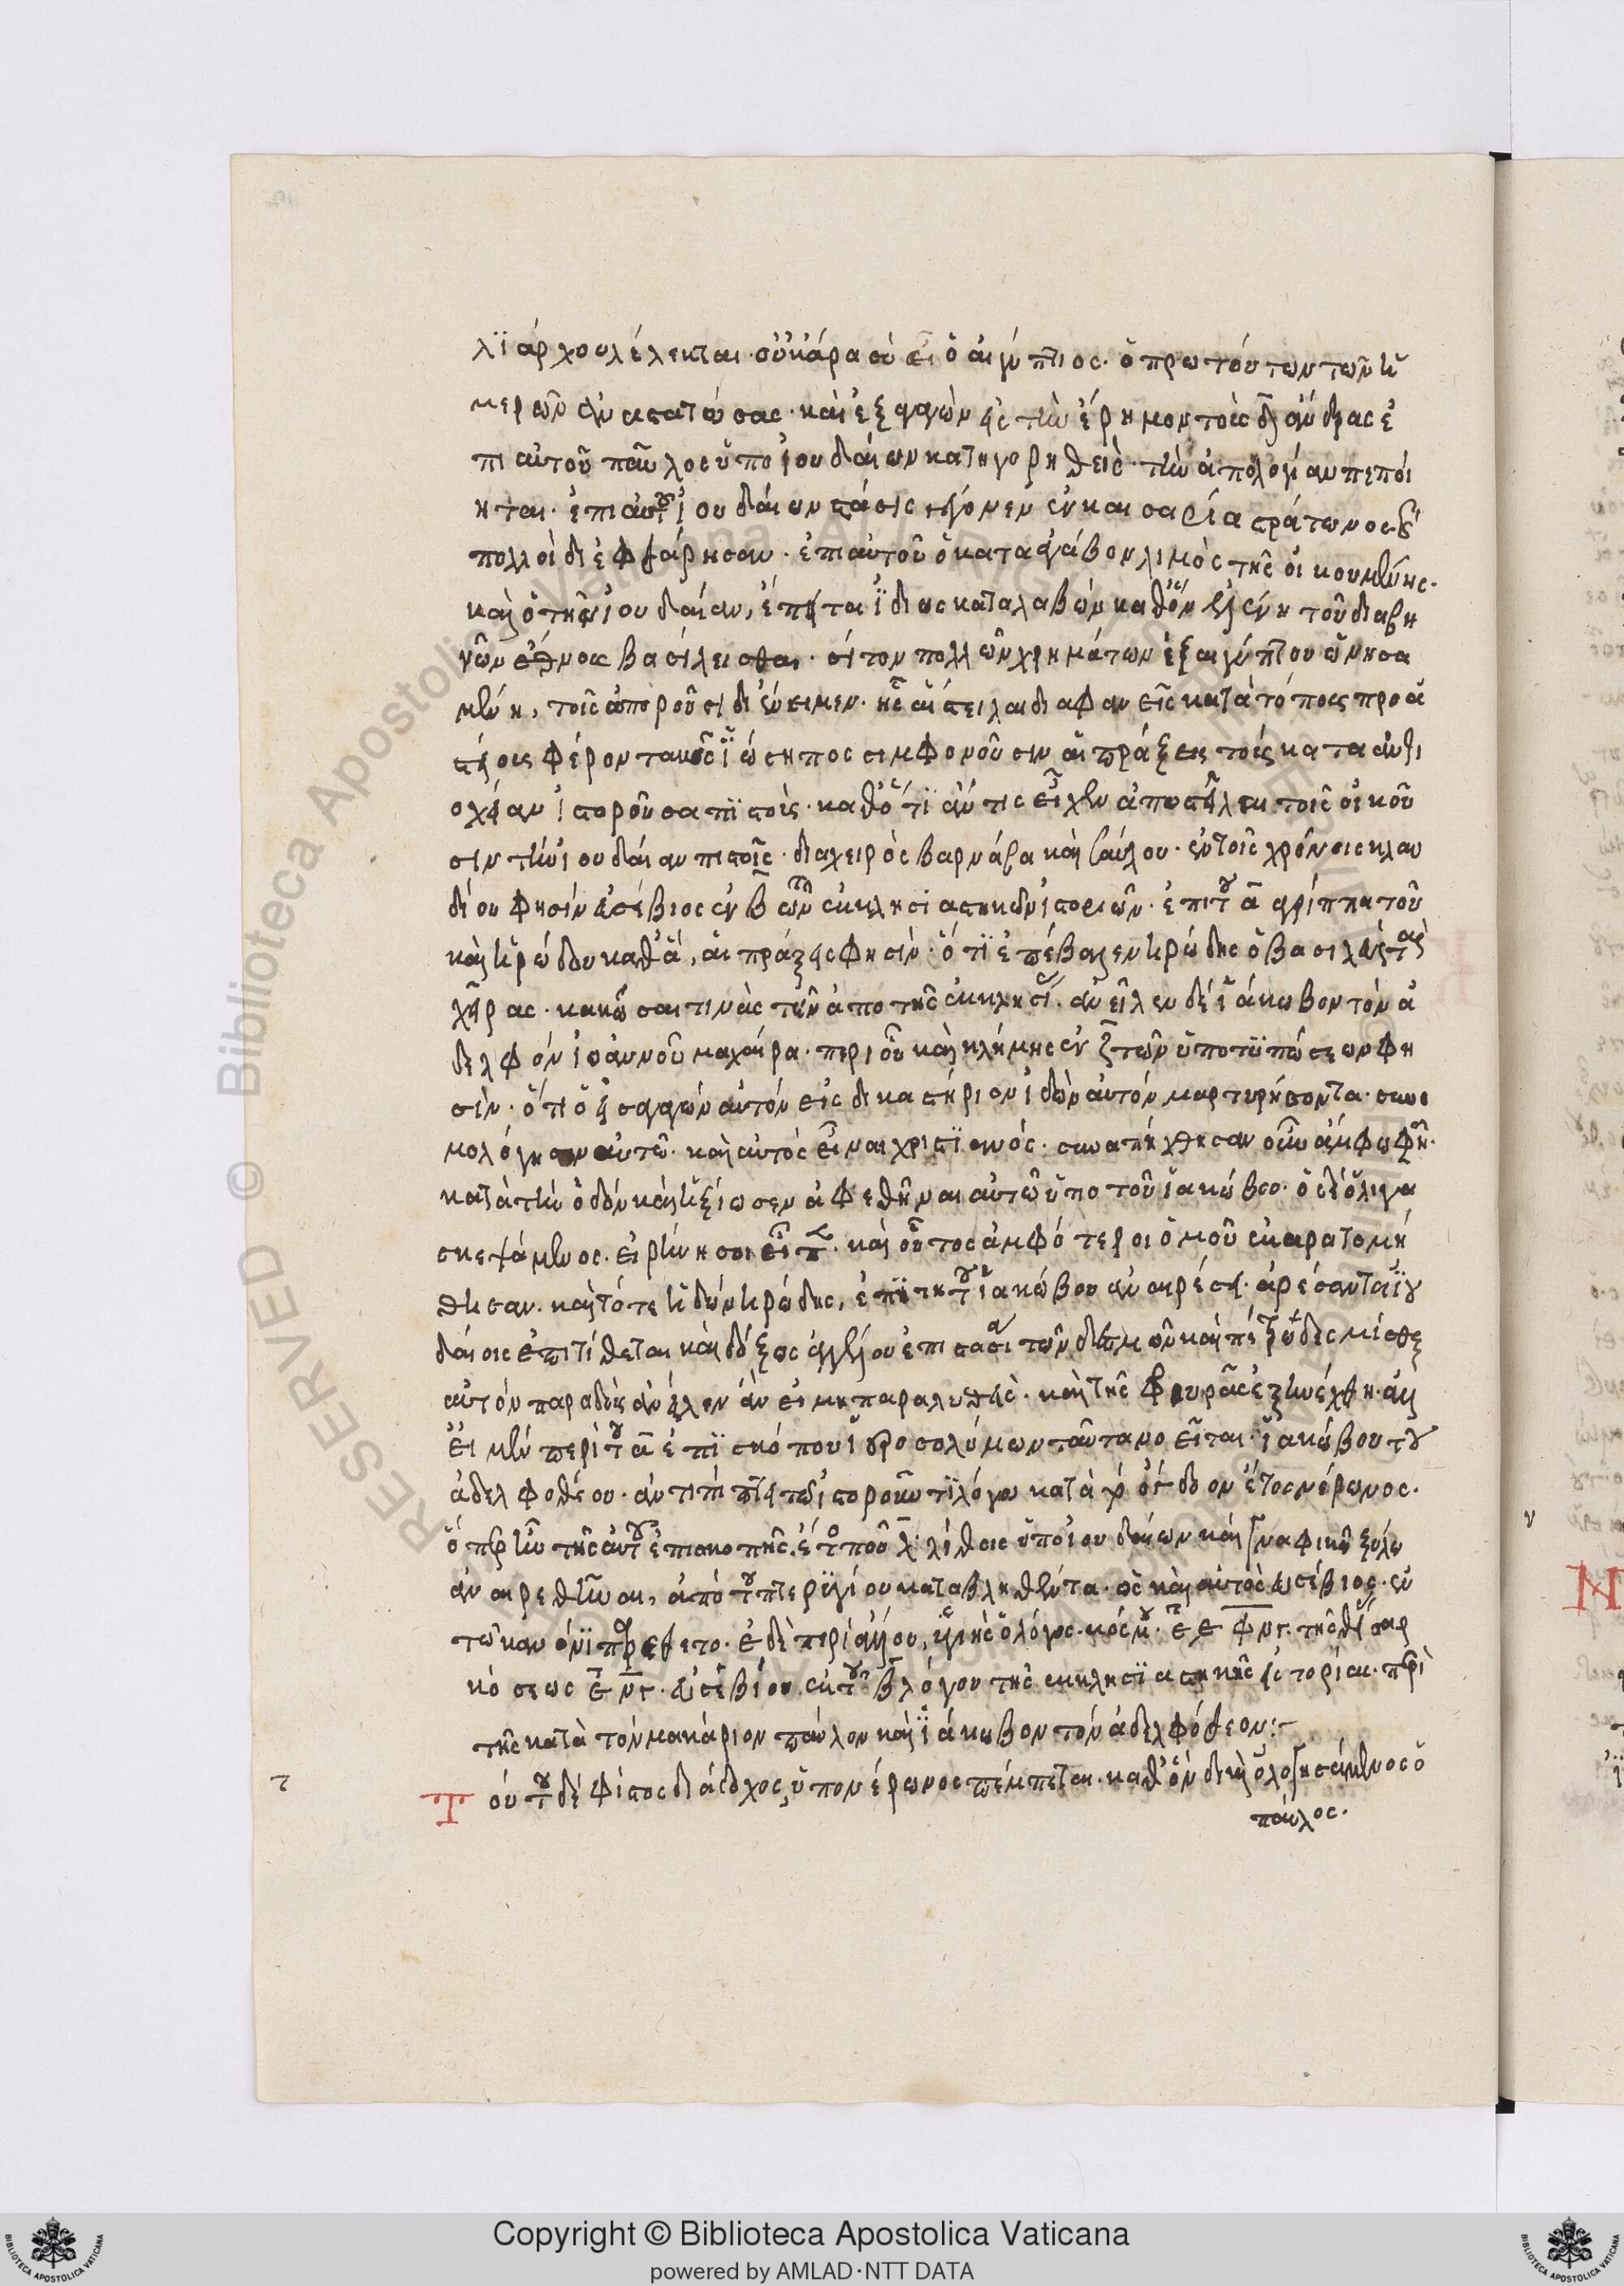 λϊάρχου λέλεκται· οὐκ ἄρα σὺ εἶ ὁ αἰγύπτιος· ὁ πρω τούτων τῶν ἡ
μερῶν ἀναστατώσας· καὶ ἐξαγαγὼν εἰς τὴν ἔρημον τοὺς δ̅ ἄνδρας ἐ
πι αὐτοῦ παῦλος ὑπο ἰουδαίων κατηγορηθεὶς· τὴν ἀπολογίαν πεποί
ηται· ἐπι αὐτοῦ ἰουδαίων στάσις γέγονεν ἐν καισαρία στράτωνος
πολλοὶ διεφθάρησαν· ἐπι αὐτοῦ ὁ κατα ἄγαβον λιμὸς τῆς οἰκουμένης·
καὶ ὁ τὴν ἰουδαίαν, ἔπειτα ϊδιως καταλαβὼν καθ ὃν ἑλένη τοῦ διαβη
νῶν ἔθνους βασίλεισθαι· σίτον πολλῶν χρημάτων ἐξ αἰγύπτου ὠνησα
μένη, τοῖς ἀποροῦσι διένειμεν· ἧς αἱ στείλαι διαφανεῖς κατὰ τόπους προἀ
στείοις φέρονται ὡς ϊώσηπος σιμφονοῦσιν αἱ πράξεις τοίς κατα ἀντι
οχείαν ἱστοροῦσα πϊστοὶς· καθό τϊ ἄν τις εἶχεν ἀποστεῖλαι τοις οἰκοῦ
σιν τὴν ἰουδαίαν πιστοῖς· δια χειρὸς βαρνάβα καὶ σαύλου· ἐν τοῖς χρόνοις κλαυ
δίου φησὶν εὐσέβιος ἐν β τῶν ἐκκλησιαστικῶν ἱστοριῶν· ἐπι τοῦ ἀγρίππα τοῦ
καὶ ἡρώδου καθ ἃ, αἱ πράξεις φησὶν· ὅτϊ ἐπέβαλεν ἡρώδης ὁ βασιλεὺς τὰς
χεῖρας· κακῶσαι τινὰς τῶν ἀπο τῆς ἐκκλησί· ἀνεῖλεν δέ ϊάκωβον τὸν ἀ
δελφόν ἰωάννου μαχαίρα· περι οὗ καὶ κλήμης ἐν ζ τῶν ὑποτϊπώσεων φη
σὶν· ὅτι ὁ εἰσαγαγὼν αὐτόν εἰς δικαστήριον ἰδὼν αὐτόν μαρτυρήσοντα· συνο
μολόγησεν αὐτῶ· καὶ αὐτὸς εἶναι χριστϊανός· συναπήχθησαν οὖν ἄμφω φη·
κατὰ τὴν ὁδὸν καὶ ἠξίωσεν ἀφεθῆναι αὐτῶ ὑπο τοῦ ϊακώβου· ὁ δὲ ὀλίγα
σκεψάμενος· εἰρήνη σοι εἶπ· καὶ οὕτος ἀμφότεροι ὁμοῦ ἐκαρατομή
θησαν· καὶ τότε ἰδὼν ἡρώδης, ἐπϊ τη τοῦ ϊακώβου ἀναιρέσει· ἀρέσαντα ϊου
δαίοις ἐπιτίθεται καὶ
αὐτόν παραδοὺς ἀνεῖλεν ἂν εἰ μη παραλυθεὶς· καὶ τῆς φρουρᾶς ἐξηνέχθη·
εἰ μὲν περὶ τοῦ ἐπϊσκόπου ϊεροσολύμων ταῦτα νοεῖται· ϊακώβου του
ἀδελφοθέου· ἀντιπίπτει τῶ ἱστοροῦντϊ λόγω κατὰ ὄγδοον ἔτος νέρωνος·
ὅπερ ἦν τῆς αὐτοῦ ἐπισκοπῆς, λίθοις ὑπο ἰουδαίων καὶ γναφικῶ ξύλω
ἀναιρεθῆναι, ἀπὸ τοῦ πτερϋγίου καταβληθέντα· ὡς καὶ αὐτὸς εὐσέβιος· ἐν
τῶ κανόνι προέθετο·
κόσεως εὐσεβίου ἐκ τοῦ β λόγου τῆς ἐκκλησϊαστικῆς ἱστορίας· περὶ
τῆς κατὰ τὸν μακάριον παύλον καὶ ϊάκωβον τὸν ἀδελφόθεον:-
τ
Τούτου δέ φίστος διάδοχος, ὑπο νέρωνος πέμπεται· καθ ὃν δικαιολογησάμενος ὁ
παύλος·
Copyright © Biblioteca Apostolica Vaticana
powered by AMLAD·NTT DATA